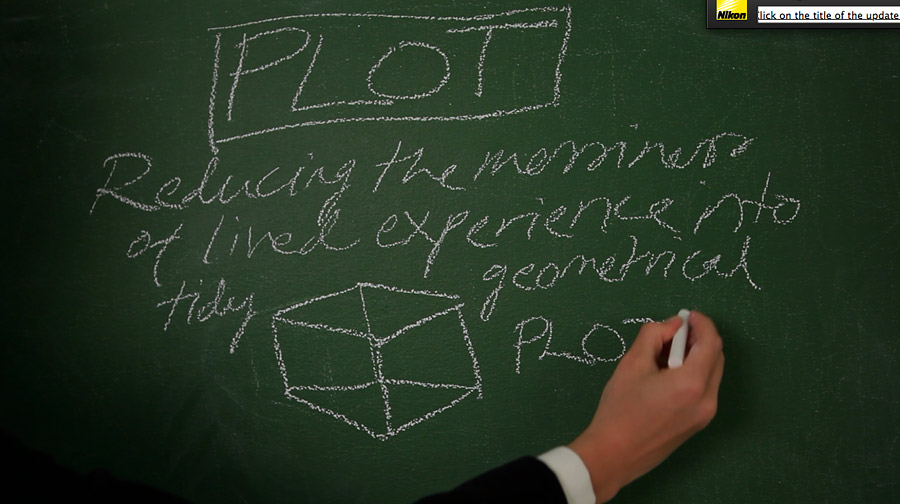 Nikon
Click on the title of the update
PLOT
Reducing the messiness
of lived experience into
tidy geometrical
PLOT